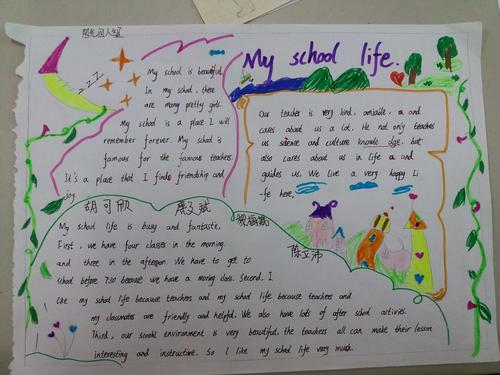 阳光四人组
My school life.
zzz
My school is beautiful.
In my school, there
are many pretty girls.
My school is a place I will
remember forever. My school is
famous for the famous teachers.
It's a place that I finds friendship and
joy.
Our teacher is very kind, amiable, and
cares about us a lot. He not only teachers
us science and culture knowle dge, but
also cares about us in life and
guides us. We live a very happy Li
-fe here.
胡可欣
陈立沛
My school life is busy and funtastic.
First, we have four classes in the morning.
and three in the afternoon. We have to get to
school before 7:30 because we have a moring class. Second, I
like my school life because teachers and my school life because teachers and
my classmates are friendly and helpful. We also have lots of after school activies.
Third, our scool environment is very beautiful, the teachers all can make their lesson
interesting and instructive. So I like my school life very much.